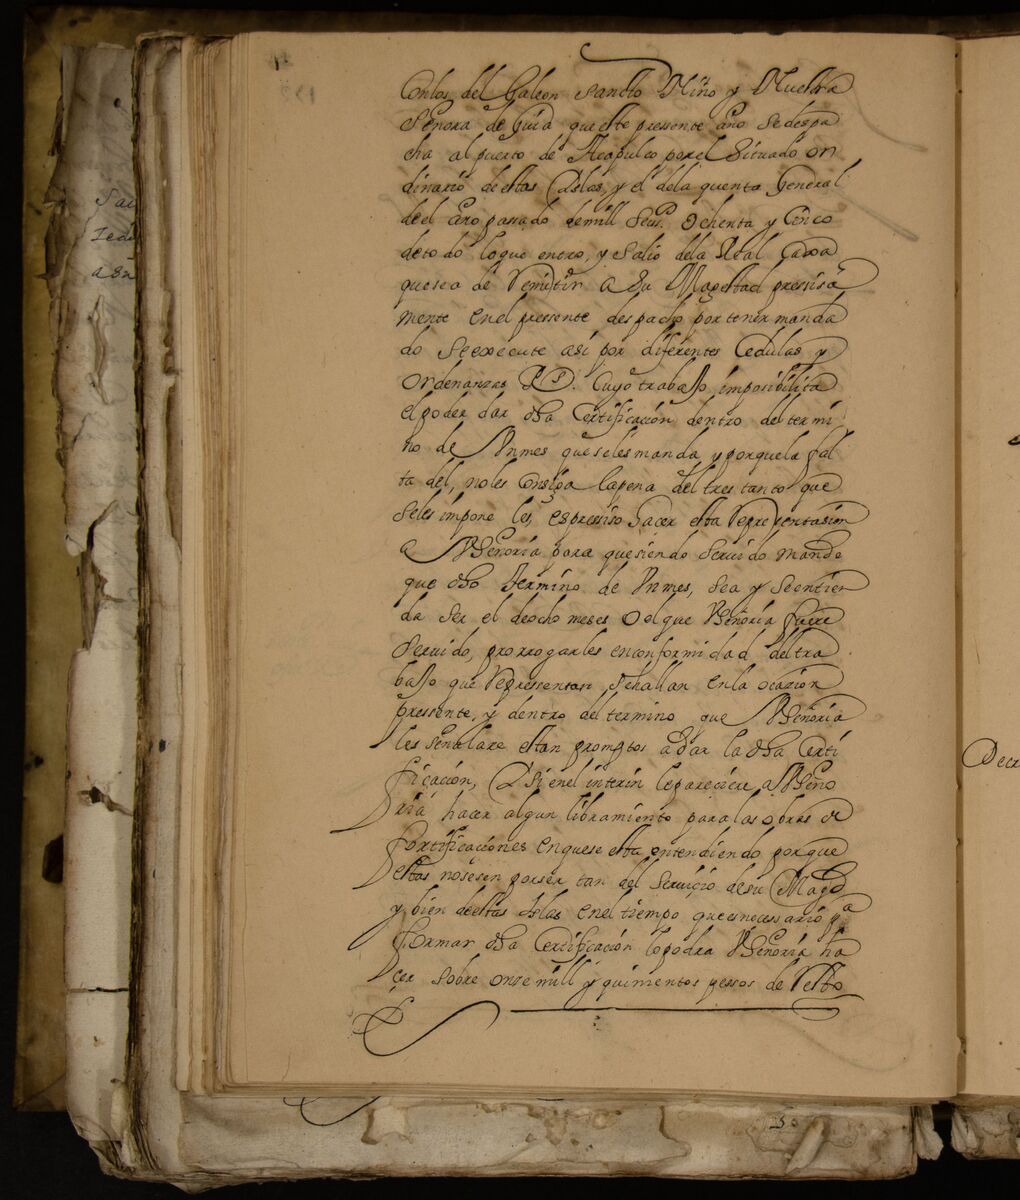 Conlos del Galeon Sancto Niño y Nuestra
Señora de Guia que este pressente año se despa
cha al puerto de Acapulco por el Situado or
dinario destas Yslas, y el dela quenta General
del año passado de mill Seis.s Ochenta y Cinco
detodo loque entro, y Salio dela Real Caxa
que sea de Remitir a Su Magestad pressisa
mente en el pressente despacho por tener manda
do Seexecute asi por diferentes Cedulas y
ordenanzas Rs. Cuyo trabaxo imposibilita
el poder dar dha Certificación dentro del termi
no de Vn mes que seles manda y porque la fal
ta del, no les Consiga la pena del tres tanto que
Seles impone les, es pressiso hacer esta Representasion
a VSeñoria para que siendo Servido mande
que dho Termino de Vn mes, sea y Seentien
da ser el de ocho meses o el que VSeñoria fuere
Servido, prorrogarles en conformidad del tra
baxo que Repressentan Sehallan en la ocazion
pressente, y dentro del termino que VSeñoria
les señalare estan promptos a dar la dha Certi
ficación, Y Si en el interin le pareciere a VSeño
ria hacer algun libramiento para las obras de
fortificaciones en que se esta entendiendo porque
estas no sesen por ser tan del Servicio de su Magd
y bien destas Yslas en el tiempo que es necessario pa
formar dha Certificación lo podra VSeñoria ha
çer sobre onse mill y quinientos pessos de Resto